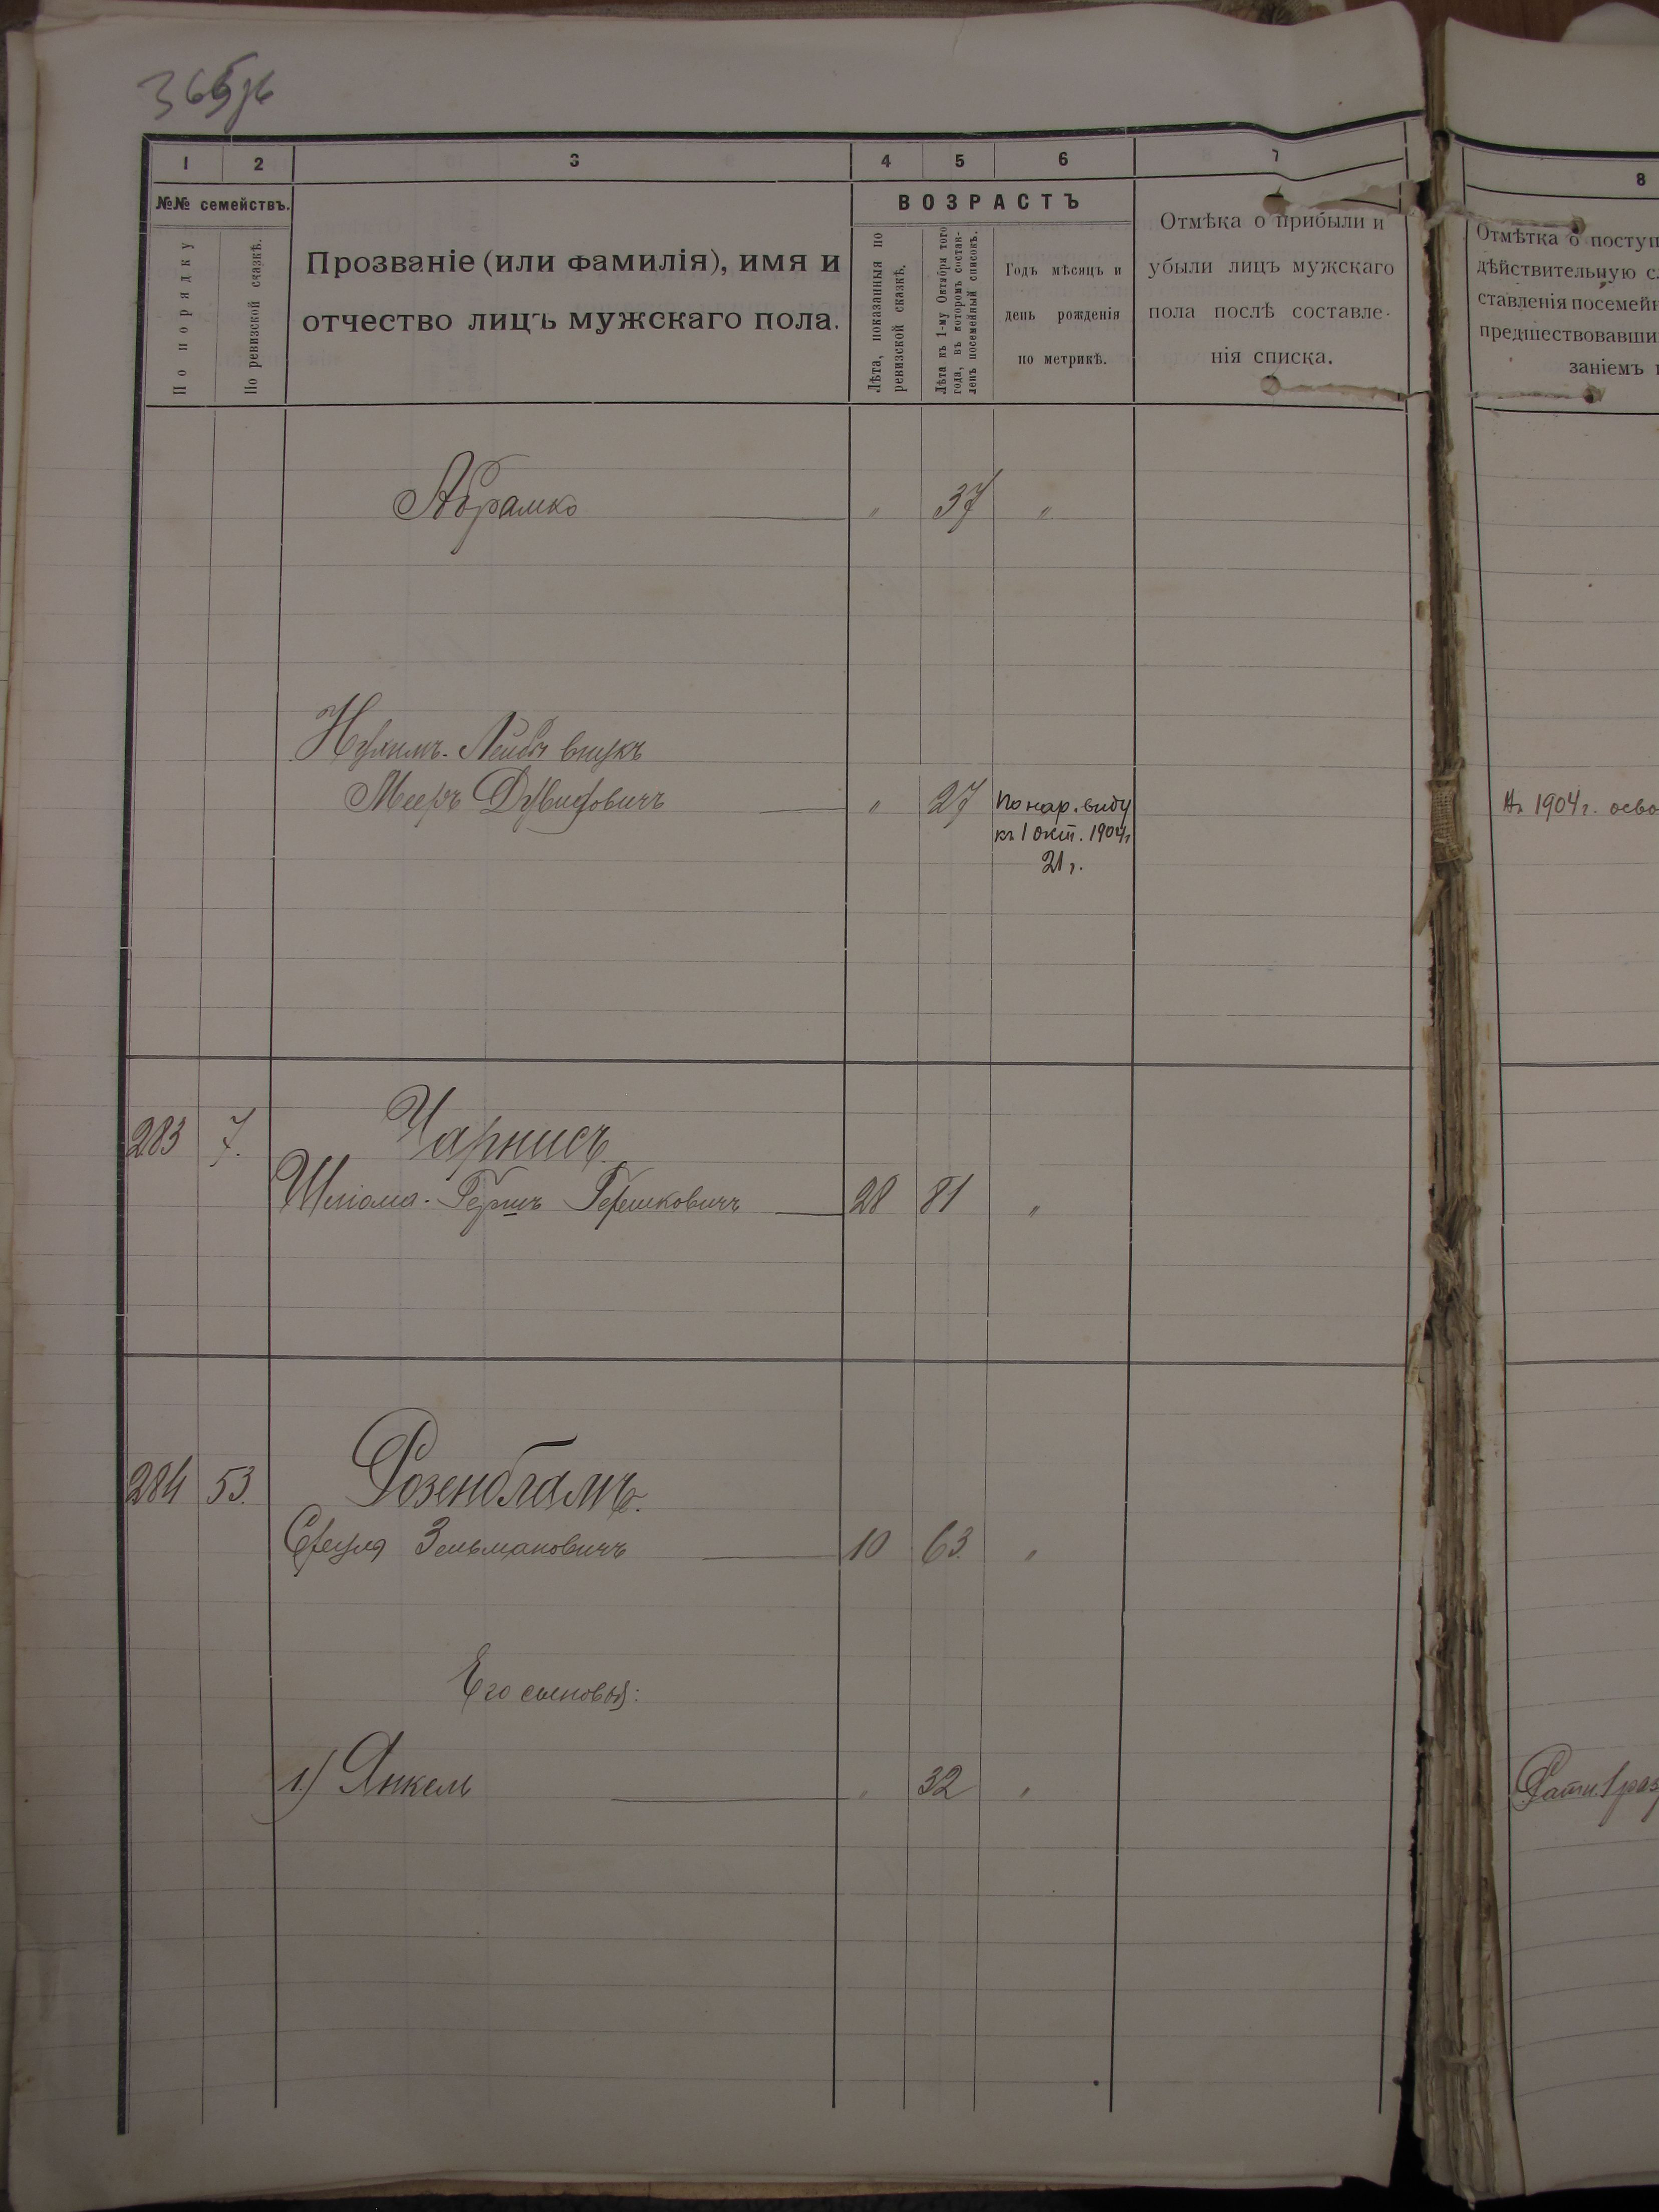 1 2 3 4 5 6 7
№№ семействъ.
По порядку
По ревизской сказкѣ.
Прозваніе (или фамилія), имя и
отчество лицъ мужскаго пола.
ВОЗРАСТЪ
Лѣта, показанныя по
ревизской сказкѣ.
Лѣта къ 1-му Октября того
года, въ которомъ состав-
ленъ посемейный списокъ.
Годъ мѣсяцъ и
день рожденія
по метрикѣ.
Отмѣка о прибыли и
убыли лицъ мужскаго
пола послѣ составле-
нія списка.
Абрамко " 37 "
Лейби внукъ
Мееръ Дувидовичъ " 27 по нар. виду
къ 1 окт. 1904 г
21 г.
283 7. Чарнисъ
Шлiома-Гершъ Гершковичъ 28 81 "
284 53. Розенбламъ.
Сруля Зельмановичъ 10 63 "
Его сыновья:
1) Янкель " 32 "
8
Отмѣтка о поступ
дѣйствительную с
ставленія посемейн
предшествовавши
заніемъ
1904 г. осво
Ратн. 1 раз